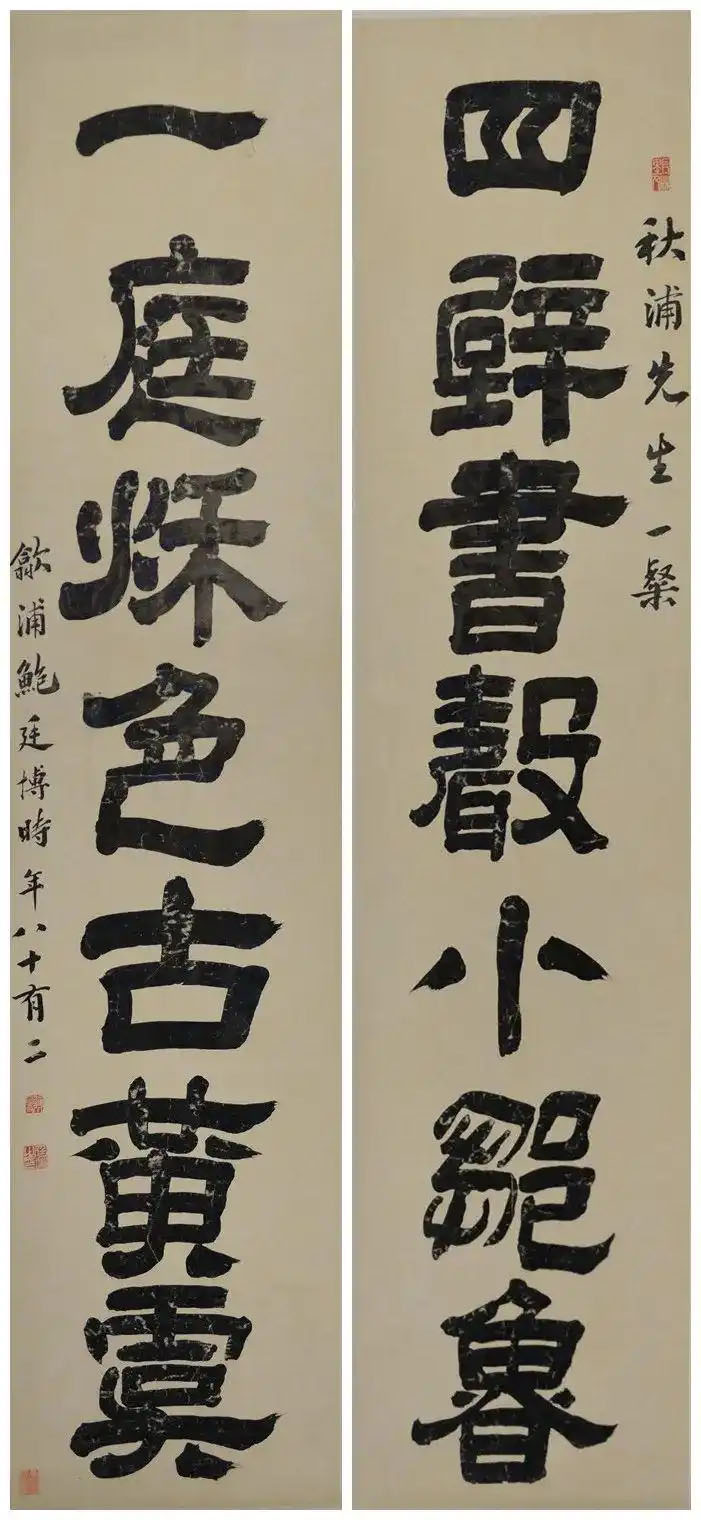 秋浦先生一粲
四壁書聲小鄒魯
一庭秌色古黃虞
歙浦鮑廷博時年八十有二